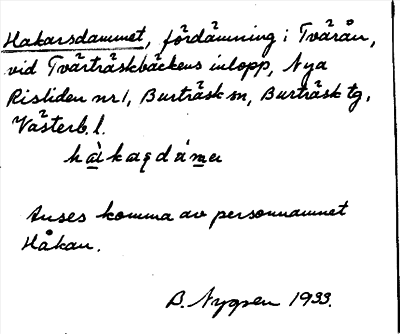 Hakarsdammet, fördämning i Tvärån,
vid Tvärträskbäckens inlopp, Nya
Risliden nr 1, Burträsk sn, Burträsk tg.
Västerb. l.
Anses komma av personnamnet
Håkan.
B. Nygren 1933.